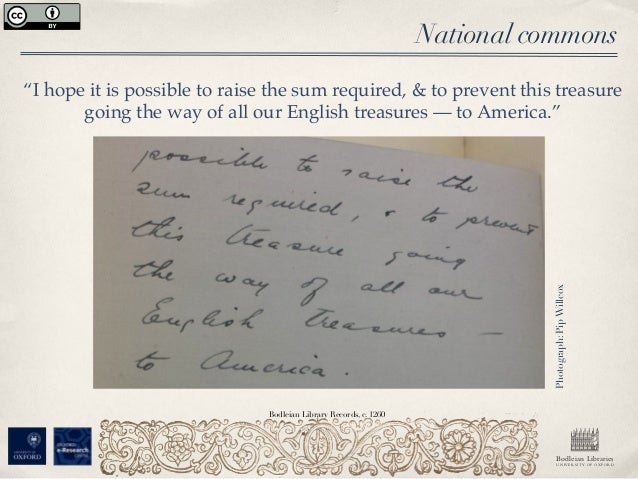 CC BY
National commons
“I hope it is possible to raise the sum required, & to prevent this treasure
going the way of all our English treasures — to America.”
possible to raise the
sum required, & to prevent
this treasure going
the way of all our
English treasures —
to America.
Photograph: Pip Willcox
Bodleian Library Records, c. 1260
UNIVERSITY OF
OXFORD
e-Research
Bodleian Libraries
UNIVERSITY OF OXFORD